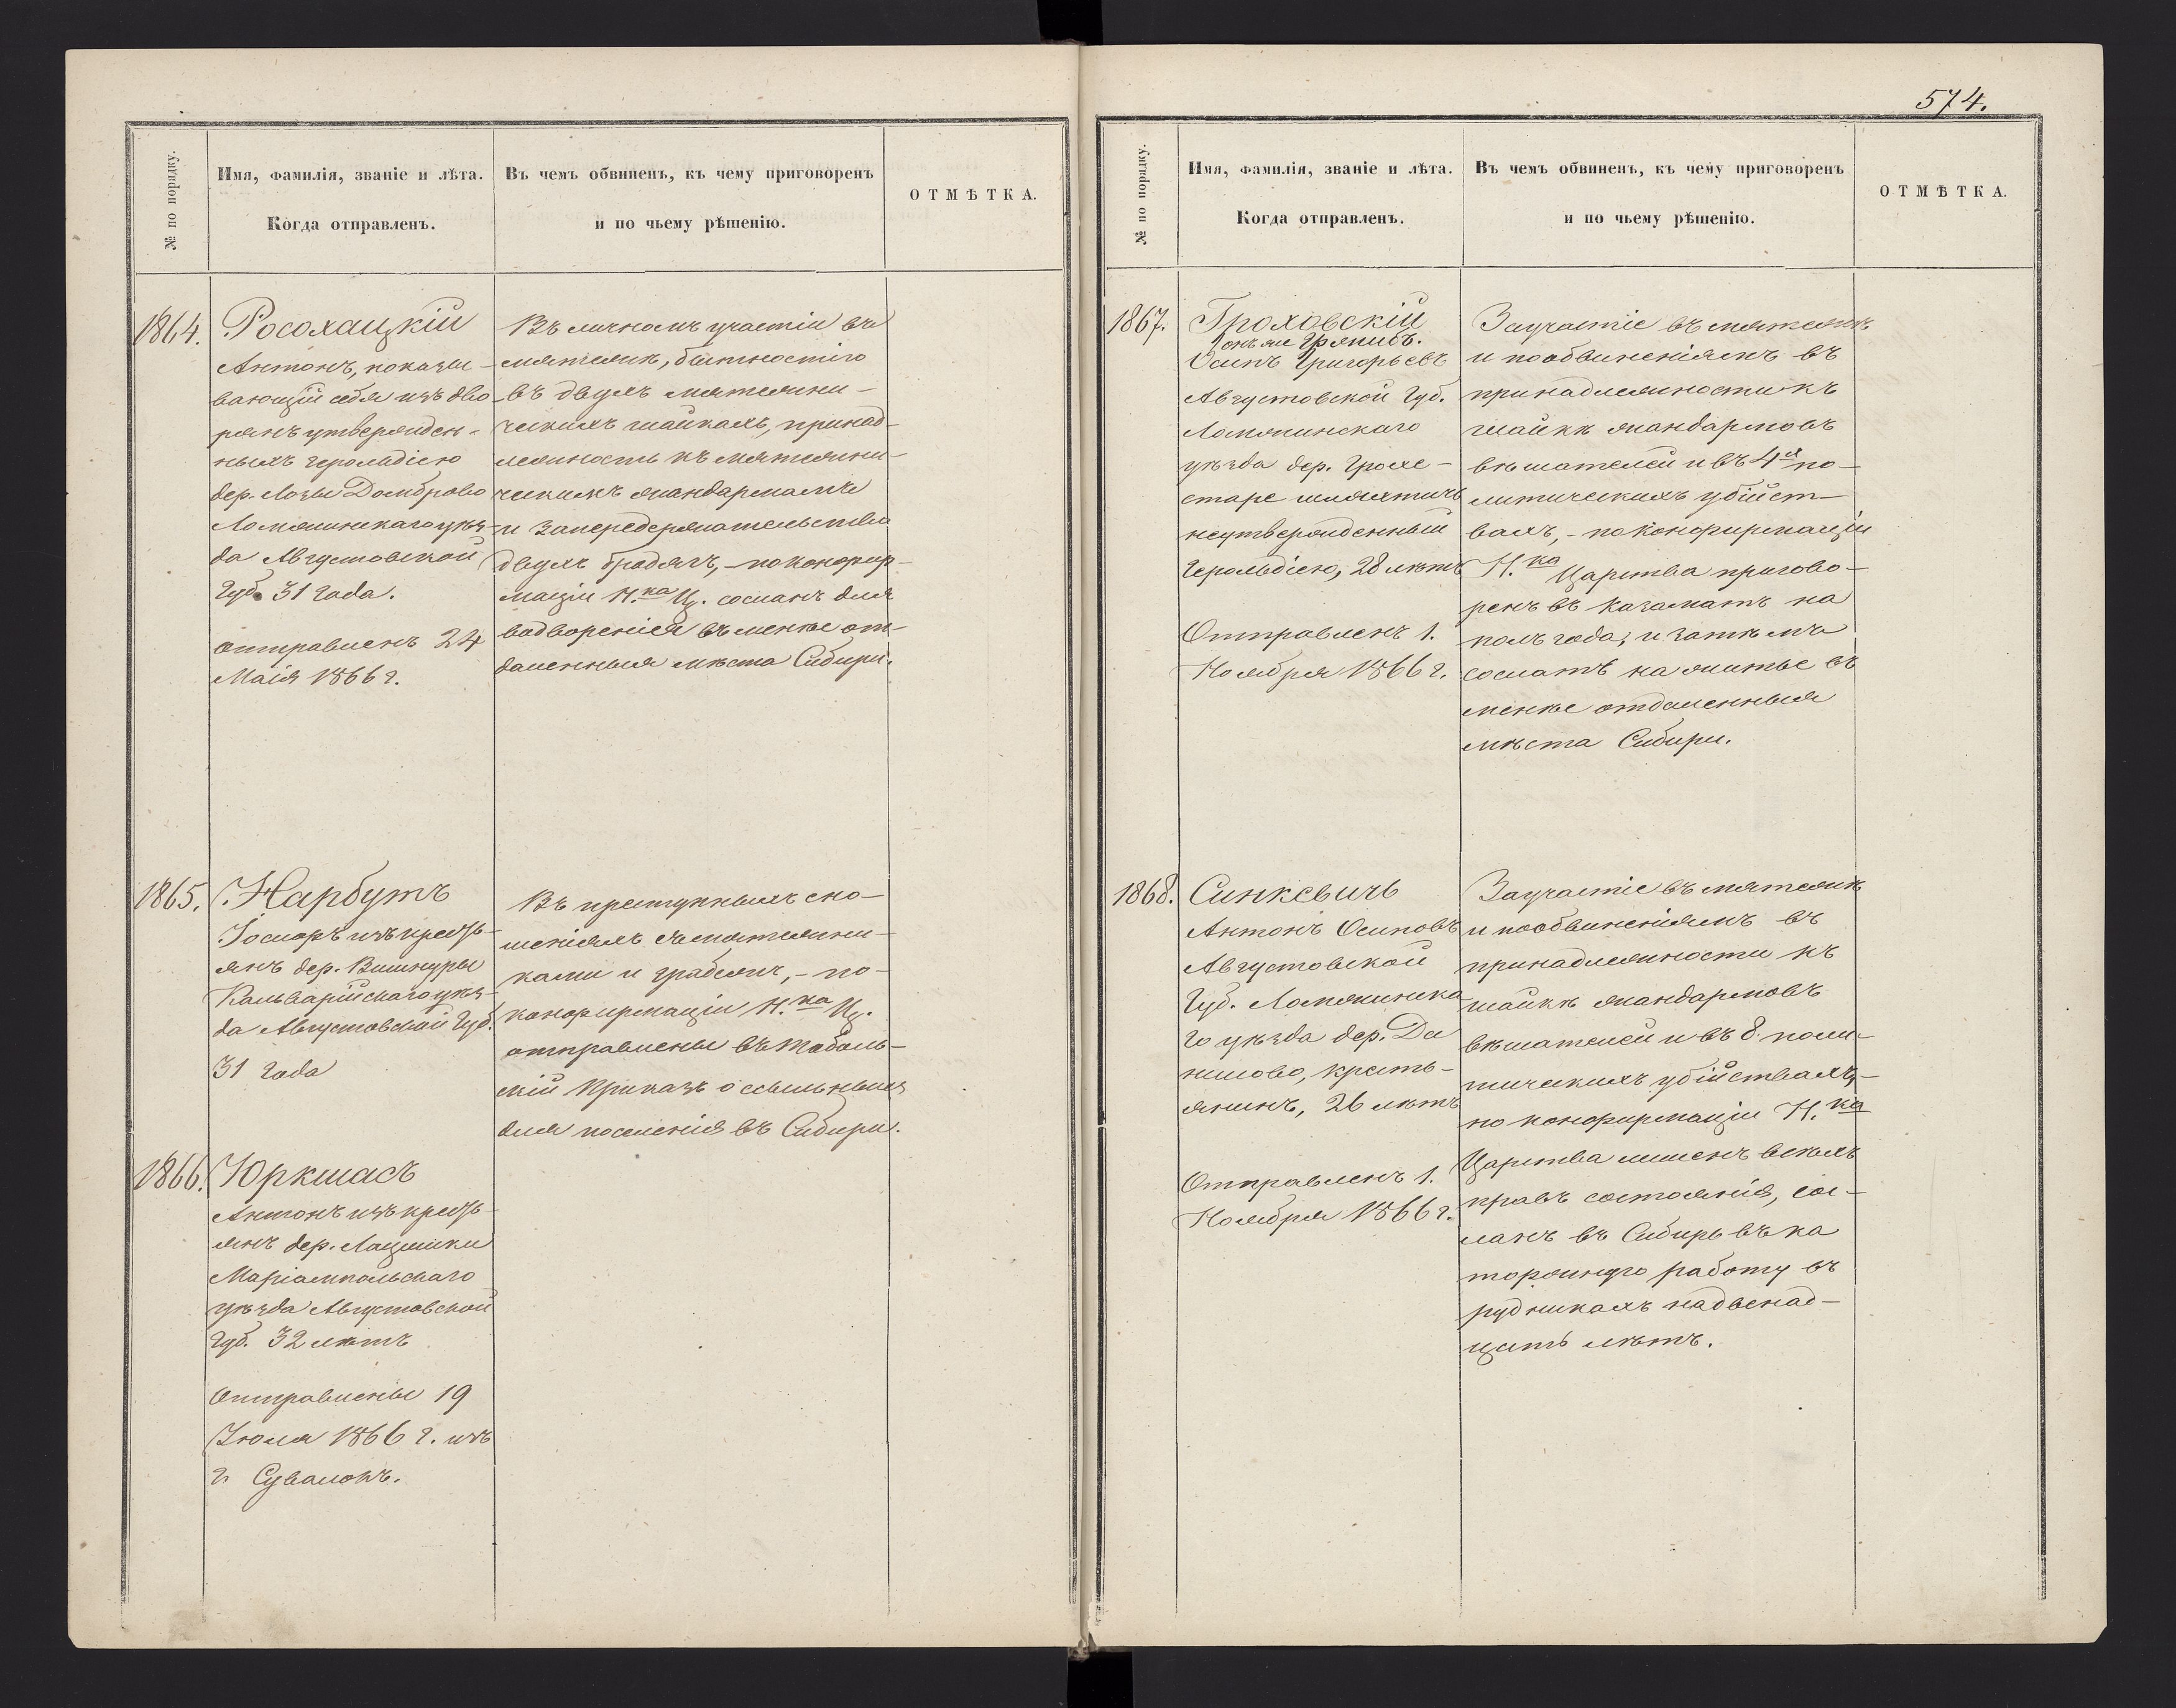 № по порядку.
Имя, фамилія, званіе и лѣта.
Когда отправленъ.
Въ чемъ обвиненъ, къ чему приговоренъ
и по чьему рѣшенію.
ОТМѢТКА.
1864.
Росохацкій
Антонъ, показы-
вающій себя изъ дво
рянъ утвержден-
ныхъ герольдіею
дер. Лозы Домброво
Ломжинскаго уѣз-
да Августовской
Губ. 31 года.
отправленъ 24
Маія 1866 г.
Въ личномъ участіи въ
мятежѣ, бытностію
въ двухъ мятежни-
ческихъ шайкахъ, принад-
лежность къ мятежни-
ческимъ жандармамъ
и за передержательство
двухъ бродягъ, - по конфир-
маціи Н.ка Ц. сосланъ для
водворенія въ менѣе от-
даленныя мѣста Сибири.
1865.
Нарбутъ
Іосифъ изъ кресть-
янъ дер. Вишнуры
Кальварійскаго уѣз-
да Августовской Губ.
31 года
Въ преступныхъ сно-
шеніяхъ съ мятежни-
ками и грабежѣ, - по
конфирмаціи Н.ка Ц.
отправлены въ Тоболь-
скій Приказъ о ссыльныхъ
для поселенія въ Сибири.
1866.
Юркшасъ
Антонъ изъ кресть-
янъ дер.
Маріампольскаго
уѣзда Августовской
Губ. 32 лѣтъ
Отправлены 19
Іюля 1866 г. изъ
г. Сувалокъ.
574.
№ по порядку.
Имя, фамилія, званіе и лѣта.
Когда отправленъ.
Въ чемъ обвиненъ, къ чему приговоренъ
и по чьему рѣшенію.
ОТМѢТКА.
1867.
Гроховскій
онъ же
Осипъ Григорьевъ
Августовской Губ.
Ломжинскаго
уѣзда дер. Грохе-
старе шляхтичъ
неутвержденный
Герольдіею, 28 лѣтъ
Отправленъ 1.
Ноября 1866 г.
За участіе въ мятежѣ
и по обвиненіямъ въ
принадлежности къ
шайкѣ жандармовъ
вѣшателей и въ 4х по-
литическихъ убійст-
вахъ, - по конфирмаціи
Н.ка Царства пригово-
ренъ въ казаматъ на
полъ года, и затѣмъ
сослать на житье въ
менѣе отдаленныя
мѣста Сибири.
1868.
Синкевичъ
Антонъ Осиповъ
Августовской
Губ. Ломжинска
го уѣзда дер. Да
нилово, кресть-
янинъ, 26 лѣтъ
Отправленъ 1.
Ноября 1866 г.
За участіе въ мятежѣ
и по обвиненіямъ въ
принадлежности къ
шайкѣ жандармовъ
вѣшателей и въ 8 поли-
тическихъ убійствахъ, -
по конфирмаціи Н.ка
Царства лишенъ всѣхъ
правъ состоянія, сос-
ланъ въ Сибирь въ ка
торжную работу въ
рудникахъ на двенад-
цать лѣтъ.